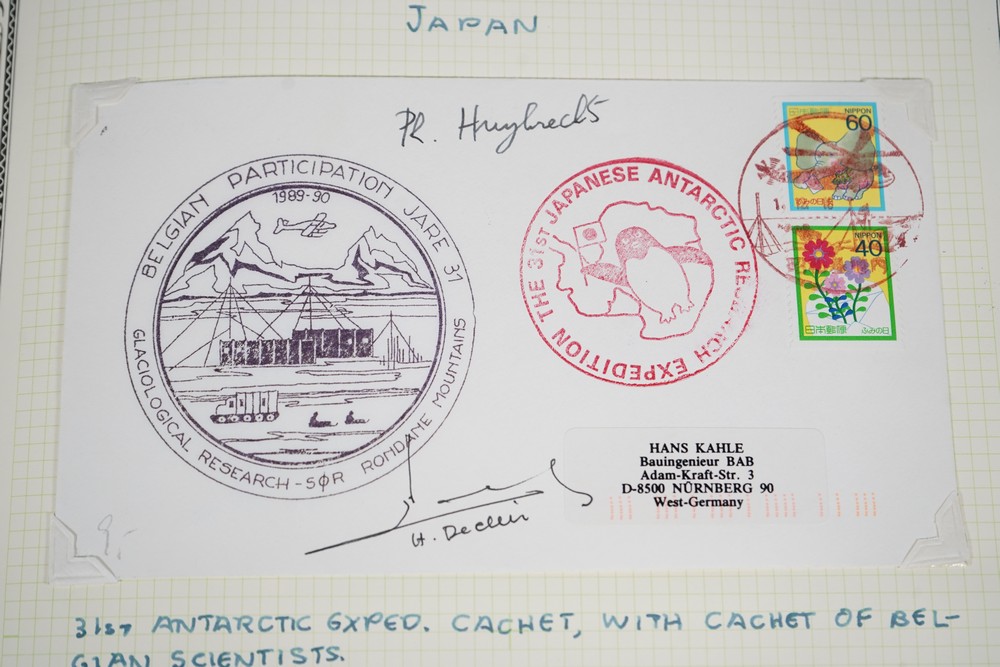 JAPAN
Ph. Huybrechts
BELGIAN PARTICIPATION JARE 31
1989-90
GLACIOLOGICAL RESEARCH - SØR RONDANE MOUNTAINS
THE 31ST JAPANESE ANTARCTIC RESEARCH EXPEDITION
日本郵便
NIPPON
60
ふみの日
NIPPON
40
日本郵便
ふみの日
HANS KAHLE
Bauingenieur BAB
Adam-Kraft-Str. 3
D-8500 NÜRNBERG 90
West-Germany
H. Decleir
9,-
31ST ANTARCTIC EXPED. CACHET, WITH CACHET OF BEL-
GIAN SCIENTISTS.